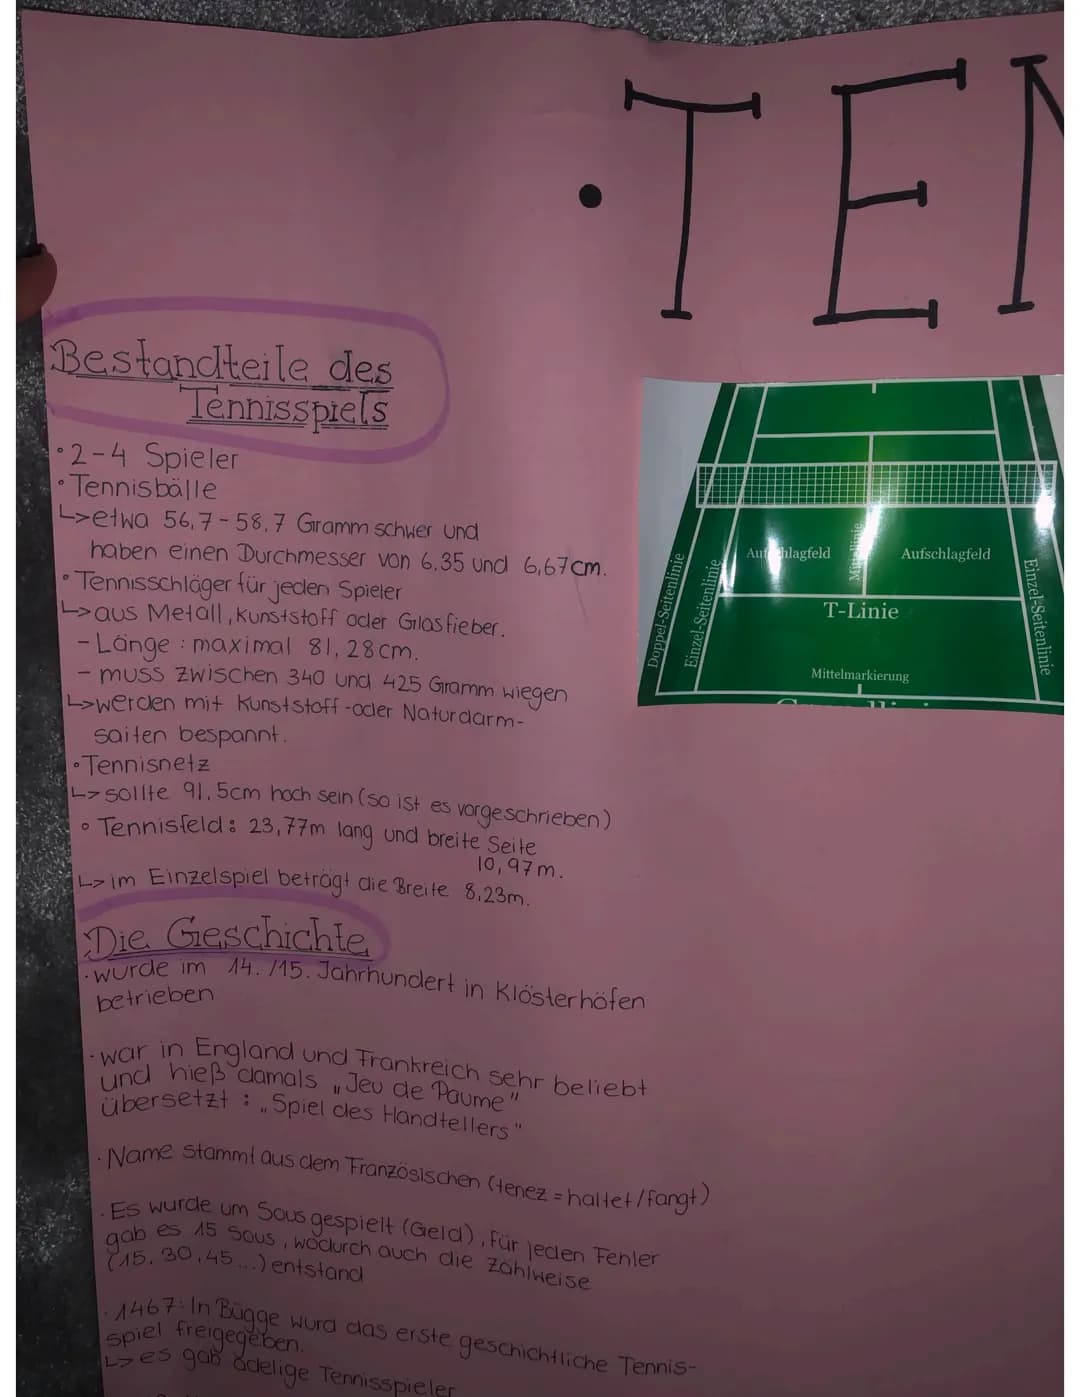 • TEN
Bestandteile des
Tennisspiels
• 2-4 Spieler
• Tennisbälle
↳ etwa 56,7-58,7 Gramm schwer und
haben einen Durchmesser von 6,35 und 6,67cm.
• Tennisschläger für jeden Spieler
↳ aus Metall, Kunststoff oder Glasfieber.
- Länge: maximal 81,28cm.
- muss zwischen 340 und 425 Gramm wiegen
↳ werden mit Kunststoff-oder Naturdarm-
saiten bespannt.
• Tennisnetz
↳ sollte 91,5cm hoch sein (so ist es vorgeschrieben)
• Tennisfeld: 23,77m lang und breite Seite
10,97m.
↳ im Einzelspiel beträgt die Breite 8,23m.
Die Geschichte
• wurde im 14./15. Jahrhundert in Klösterhöfen
betrieben
• war in England und Frankreich sehr beliebt
und hieß damals „Jeu de Paume"
übersetzt: „Spiel des Handtellers"
• Name stammt aus dem Französischen (tenez = haltet/fangt)
• Es wurde um Sous gespielt (Geld), für jeden Fehler
gab es 15 Sous, wodurch auch die Zählweise
(15, 30, 45...) entstand
• 1467: In Bügge wurd das erste geschichtliche Tennis-
spiel freigegeben.
↳ es gab adelige Tennisspieler
Aufschlagfeld
Mittellinie
Aufschlagfeld
Doppel-Seitenlinie
Einzel-Seitenlinie
T-Linie
Einzel-Seitenlinie
Mittelmarkierung